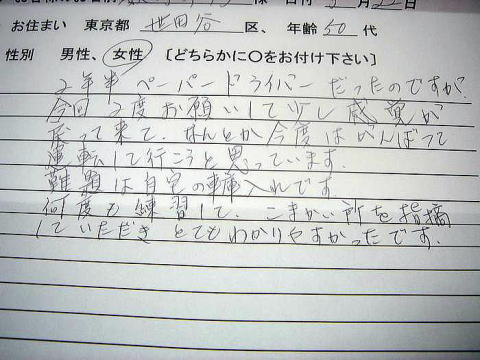 お住まい 東京都 世田谷 区、 年齢 50 代
性別 男性、 女性 〔どちらかに〇をお付け下さい〕
2年半 ペーパードライバーだったのですが
今回 2度お願いして少し感覚が
戻って来て、なんとか今度はがんばって
運転して行こうと思っています。
難題は自宅の車庫入れです。
何度も練習して、こまかい所を指摘
していただき とてもわかりやすかったです。